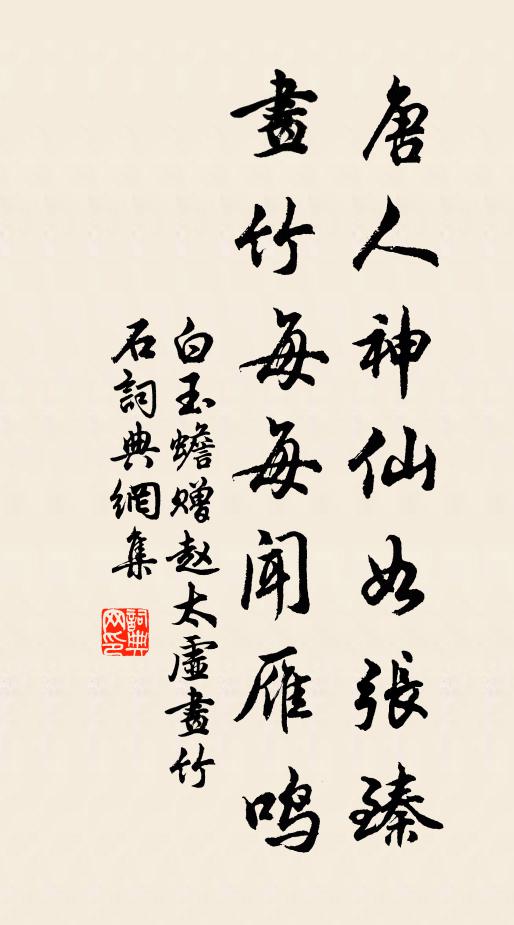 唐人神仙如張臻
畫竹每每闻雁鸣
白玉蟾赠赵太虛畫竹
石詞典網集
詞典網印